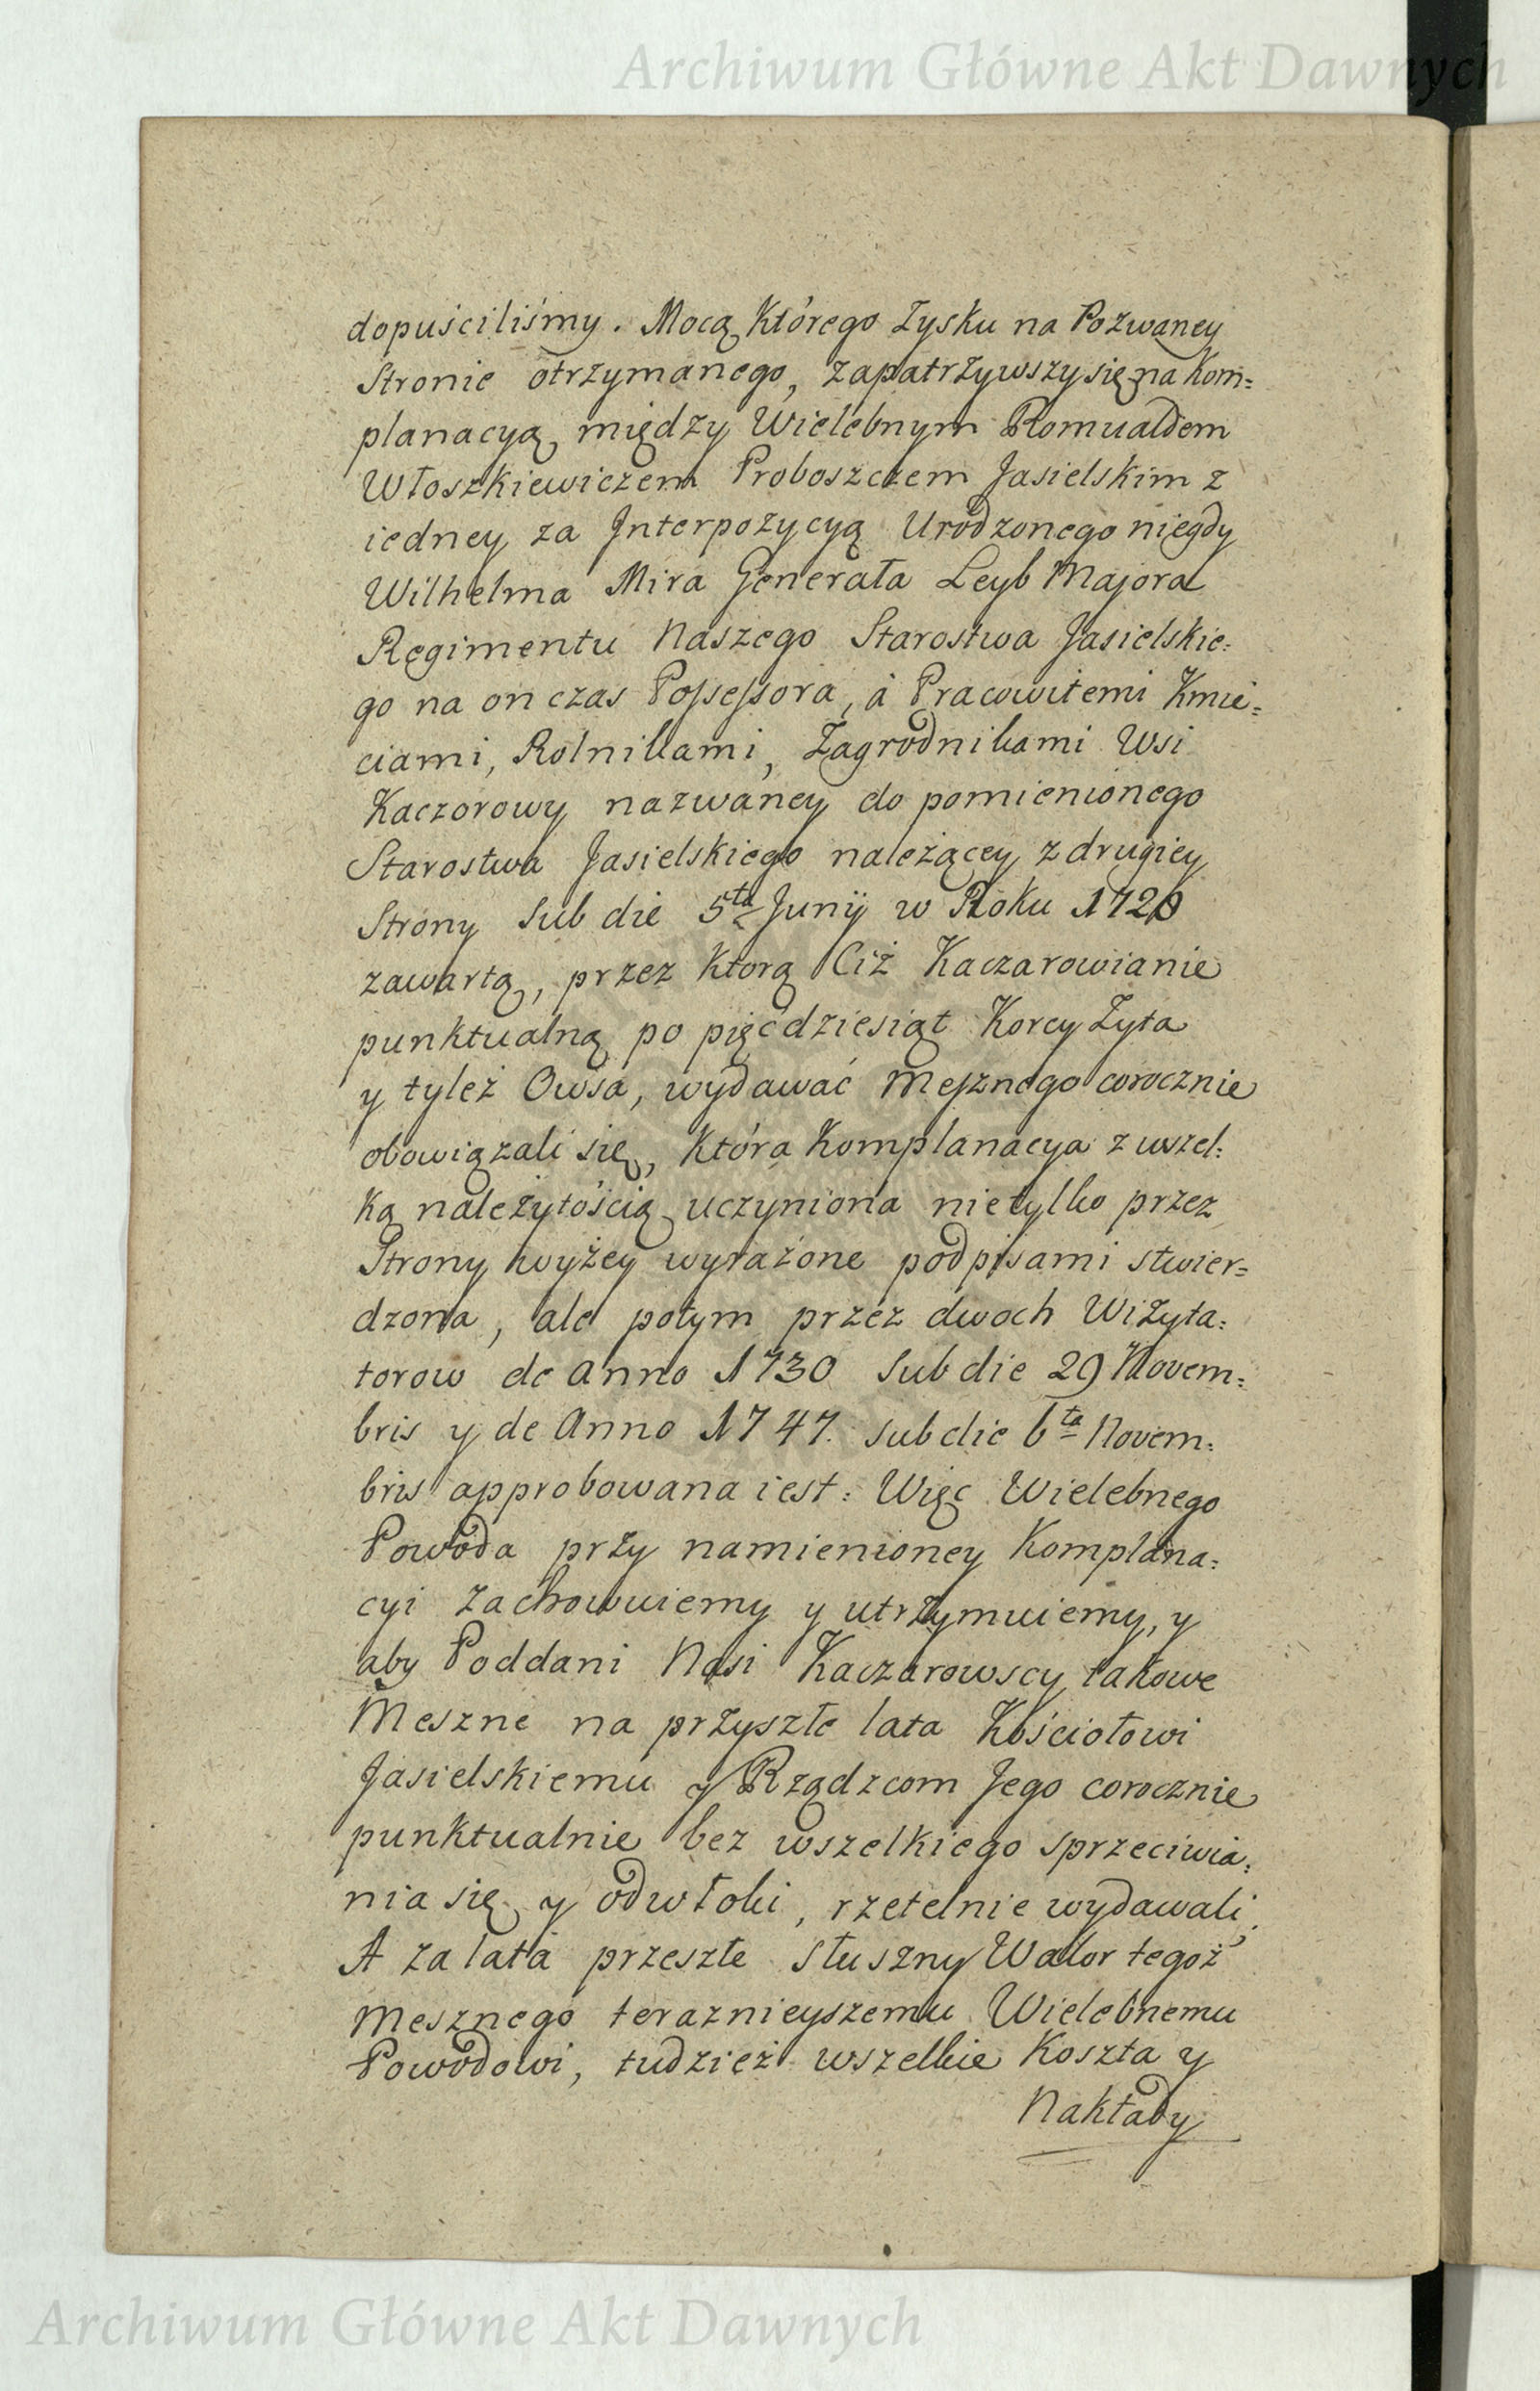 Archiwum Główne Akt Dawnych
dopuściliśmy. Mocą Którego Zysku na Pozwaney
Stronie otrzymanego, zapatrzywszy się na Kom=
planacyą między Wielebnym Romualdem
Włoszkiewiczem Proboszczem Jasielskim z
iedney za Interpozycyą Urodzonego niegdy
Wilhelma Mira Generała Leyb Majora
Regimentu Naszego Starostwa Jasielskie=
go na on czas Possessora, á Pracowitemi Kmie=
ciami, Rolnikami, Zagrodnikami Wsi
Kaczorowy nazwaney do pomienionego
Starostwa Jasielskiego należącey z drugiey
Strony Sub die 5ta Junij w Roku
zawartą, przez Ktorą Ciż Kaczarowianie
punktualną po pięcdziesiąt Korcy Zyta
y tyleż Owsa, wydawać Mesznego corocznie
obowiązali się, Która Komplanacya z wszel=
ką należytością uczyniona nietylko przez
Strony wyżey wyrażone podpisami stwier=
dzona, ale potym przez dwoch Wizyta=
torow de anno 1730 Sub die 29 Novem=
bris y de Anno 1747. sub die 6ta Novem=
bris approbowana iest: Więc Wielebnego
Powoda przy namienioney Komplana=
cyi zachowuiemy y utrzymuiemy, y
aby Poddani Nasi Kaczarowscy takowe
Meszne na przyszłe lata Kościołowi
Jasielskiemu y Rządzcom Jego corocznie
punktualnie bez wszelkiego sprzeciwia=
nia się y odwłoki, rzetelnie wydawali,
A za lata przeszłe słuszny Walor tegoż
Mesznego teraznieyszemu Wielebnemu
Powodowi, tudzież wszelkie Koszta y
Nakłady
Archiwum Główne Akt Dawnych